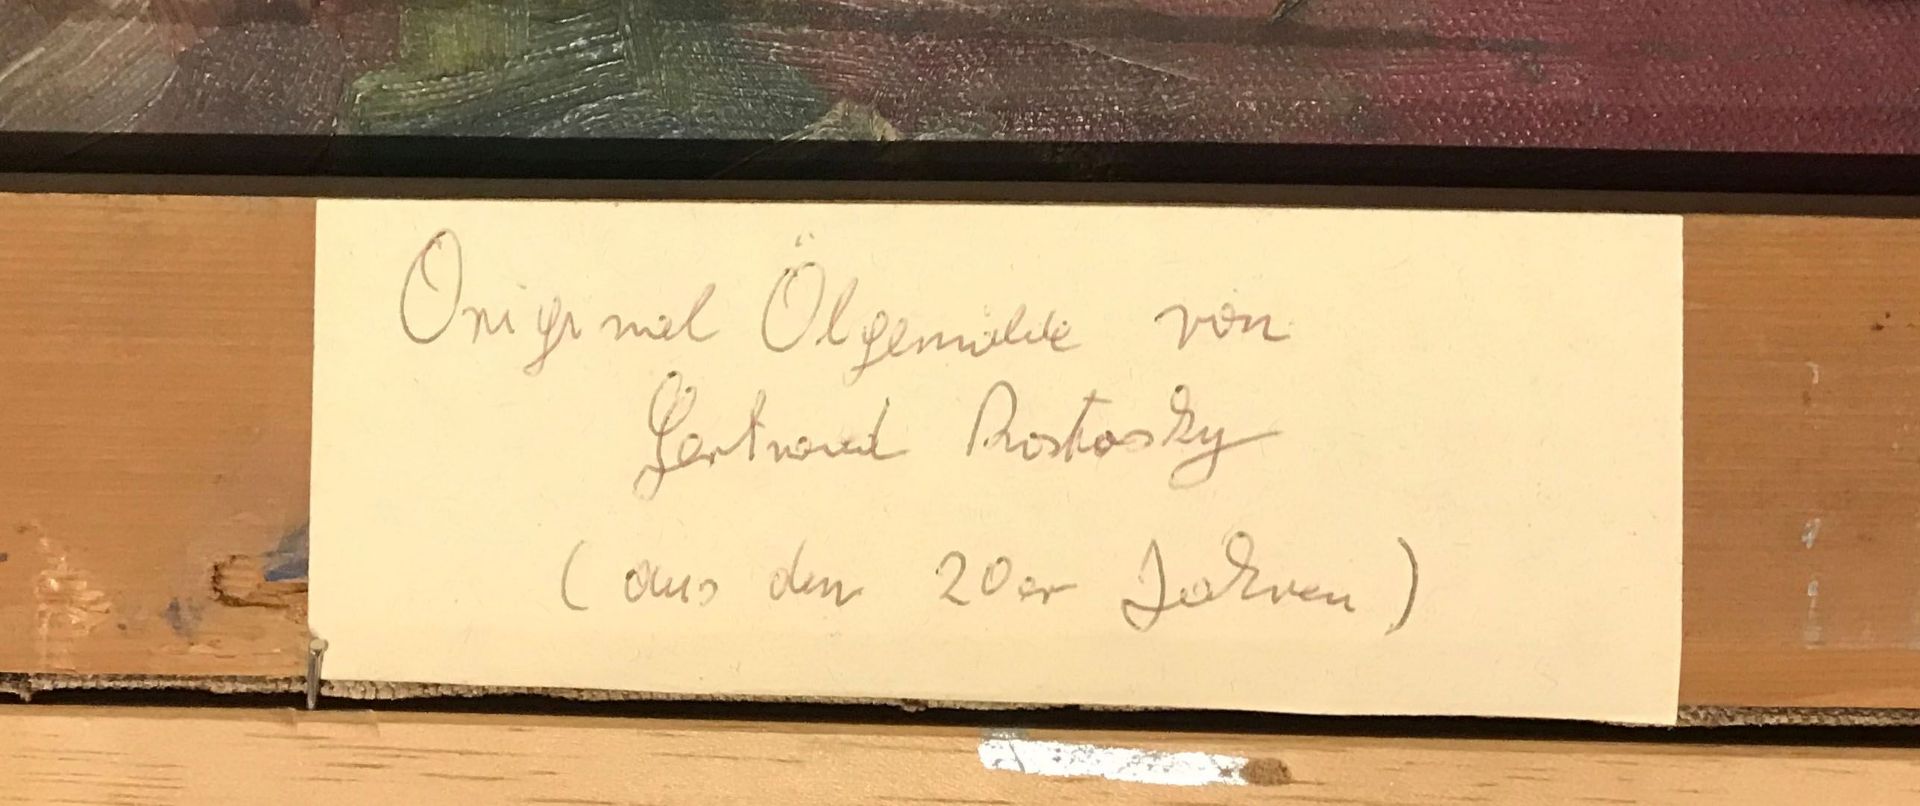 Original Ölgemälde von
Gertraud Rostosky
(aus den 20er Jahren)